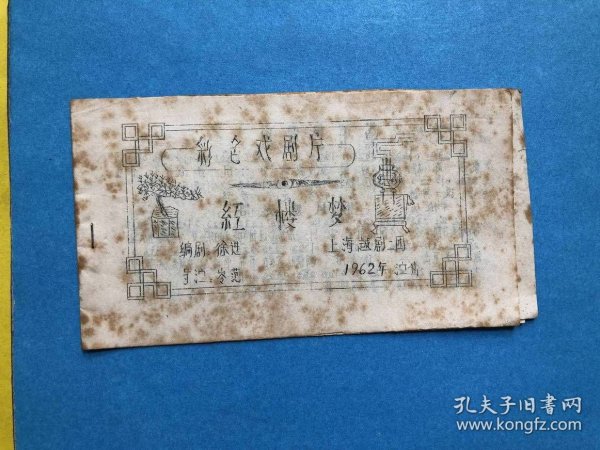 彩色戏剧片
红楼梦
编剧 徐进
上海越剧二团
导演 岑范
1962年
孔夫子旧书网
www.kongfz.com